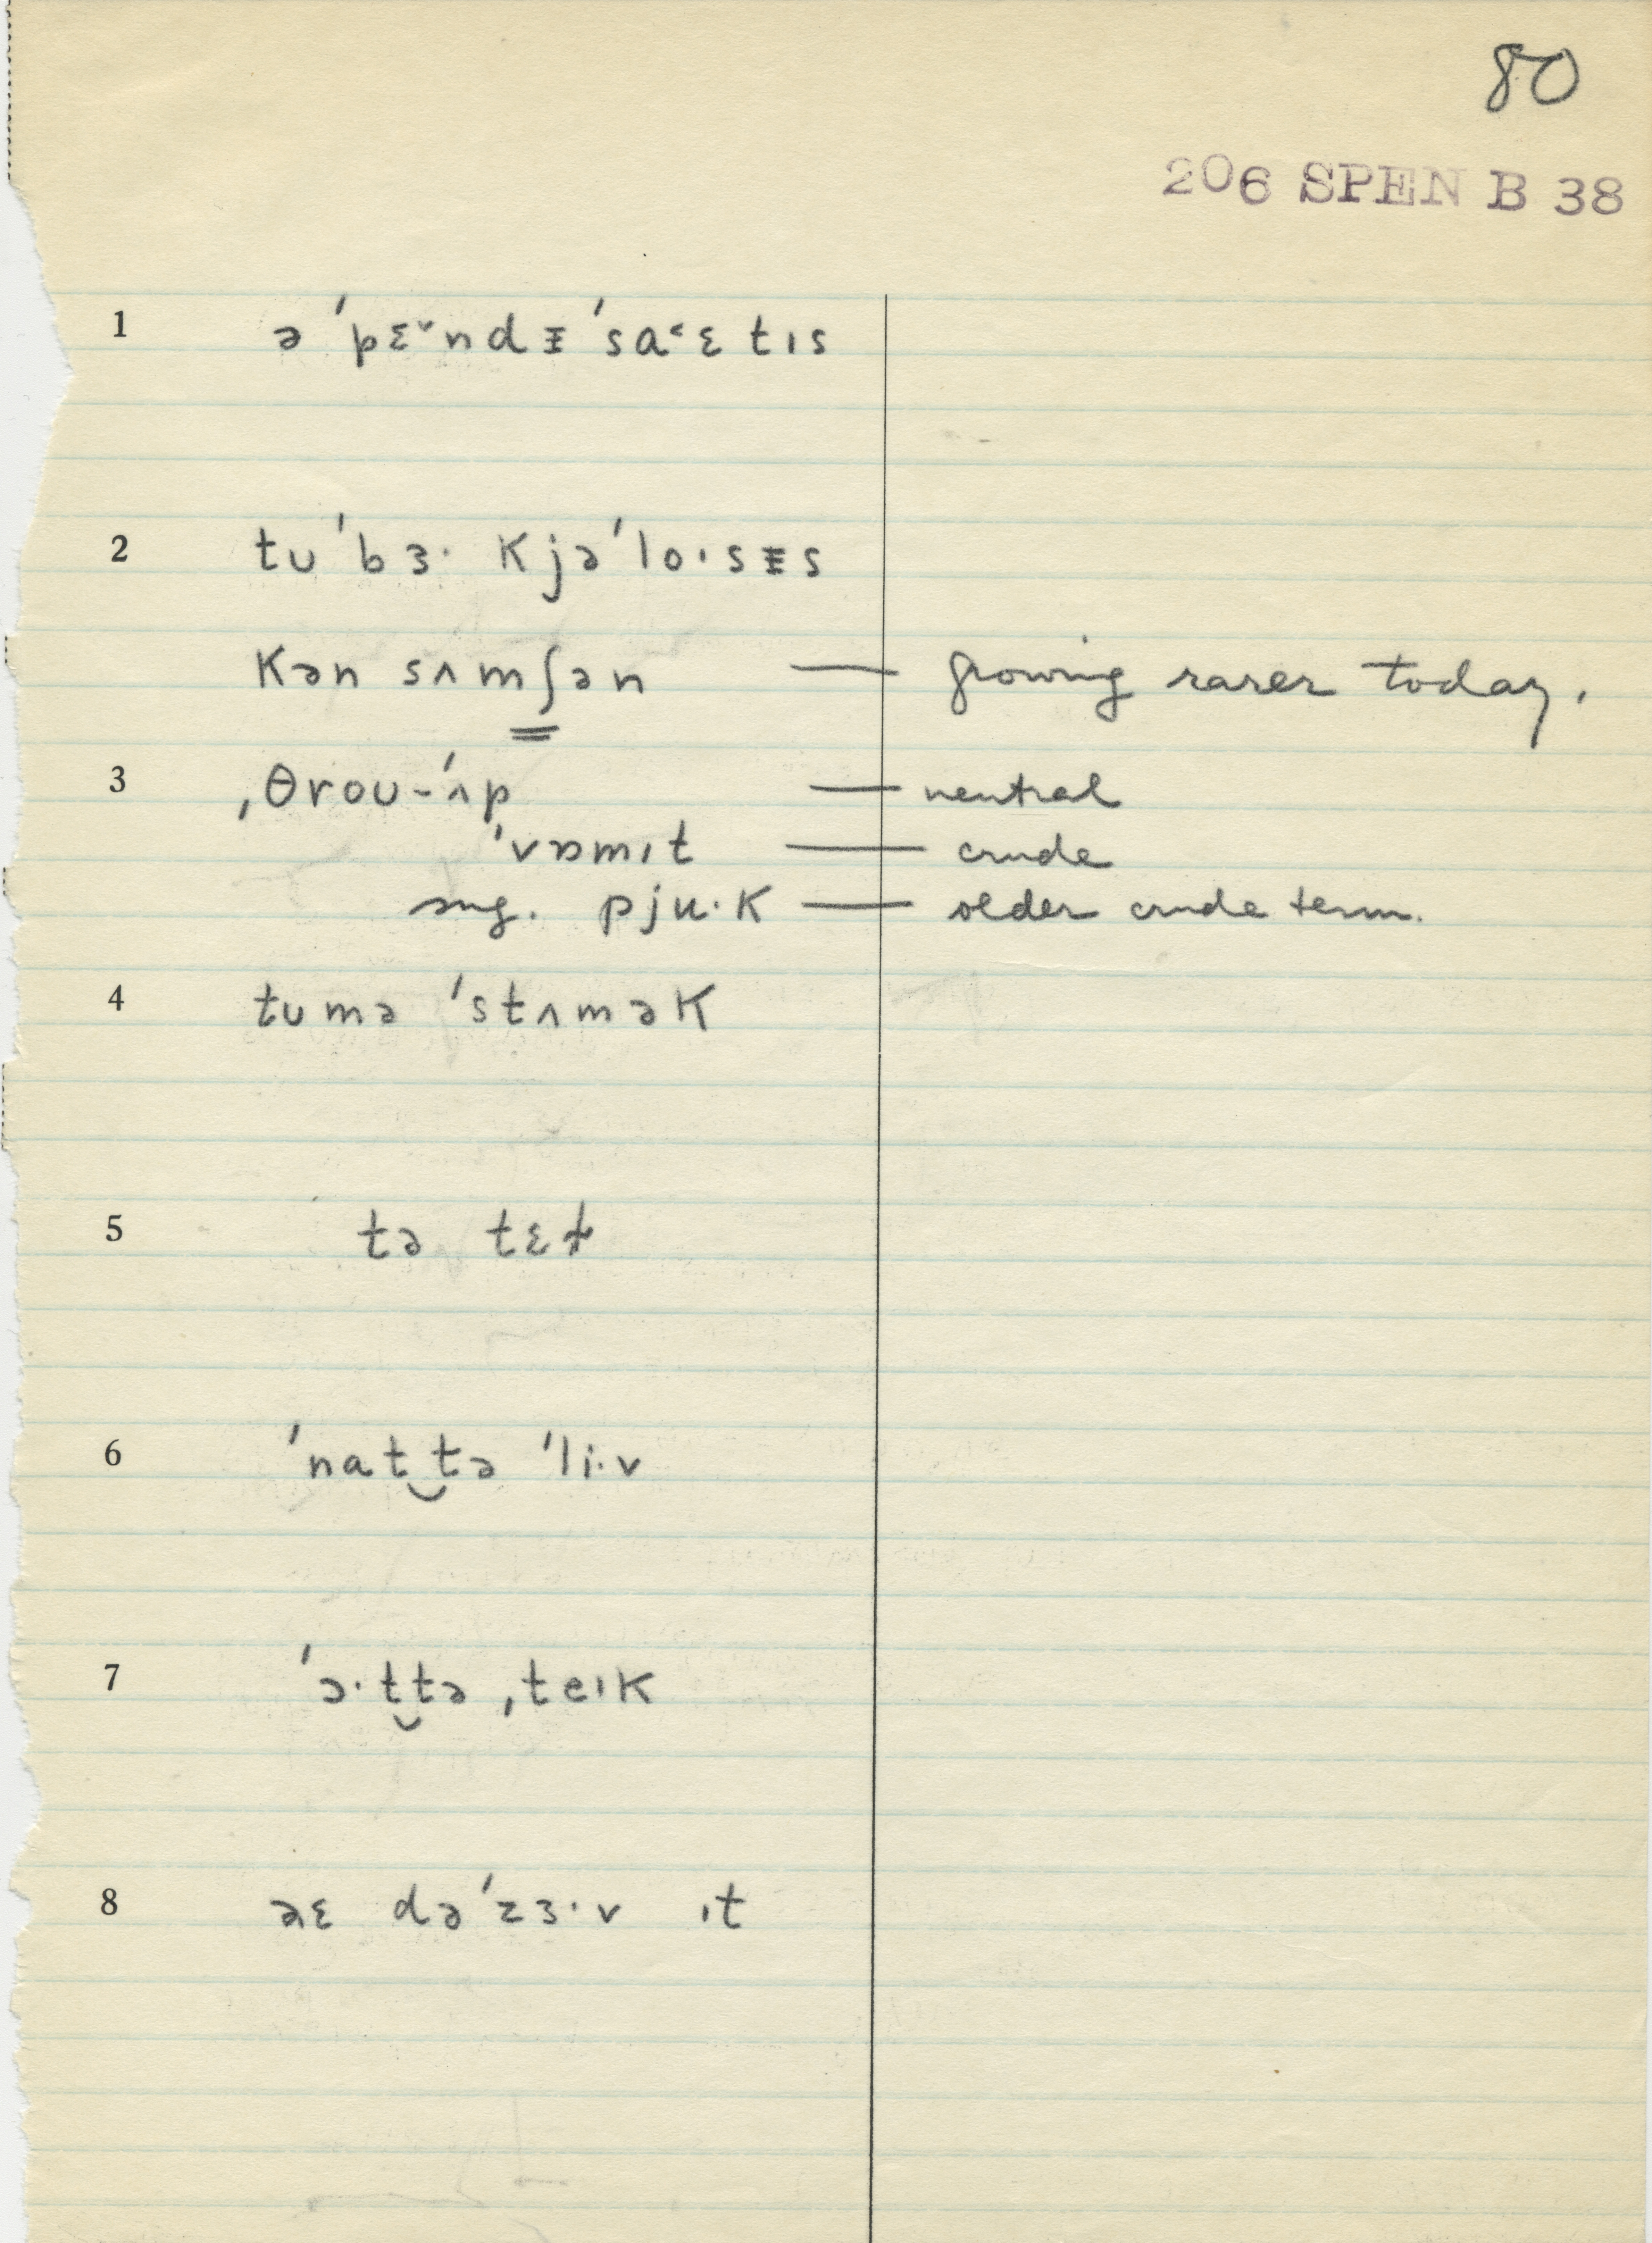 80
206 SPEN B 38
1 ə ˈpɛ˅ndᵻˈsa˂ɛtɪs
2 tʊˈbɜ· kjəˈlo·ɪsᵻs
kən sʌmʃən — growing rarer today.
3 ˌθroʊ-ˈʌp — neutral
ˈvɒmɪt — crude
sug. pju·k — older crude term.
4 tʊmə ˈstʌmək
5 tə tɛɫ
6 ˈnat‿tə ˈli·v
7 ˈɔ·t‿tə ˌteɪk
8 aɛ dəˈzɜ·v ɪt